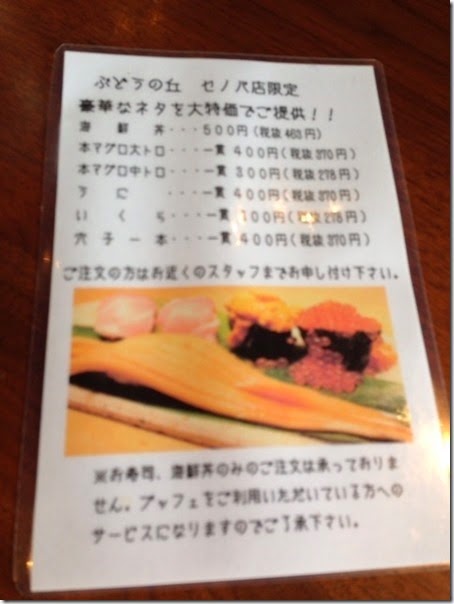 ぶどうの丘 セノバ店限定
豪華なネタを大特価でご提供！！
海鮮丼・・・500円(税抜463円)
本マグロ大トロ・・・一貫400円(税抜370円)
本マグロ中トロ・・・一貫300円(税抜278円)
うに・・・一貫400円(税抜370円)
いくら・・・一貫300円(税抜278円)
穴子一本・・・一貫400円(税抜370円)
ご注文の方はお近くのスタッフまでお申し付け下さい。
※お寿司、海鮮丼のみのご注文は承っておりま
せん。ブッフェをご利用いただいている方への
サービスになりますのでご了承下さい。